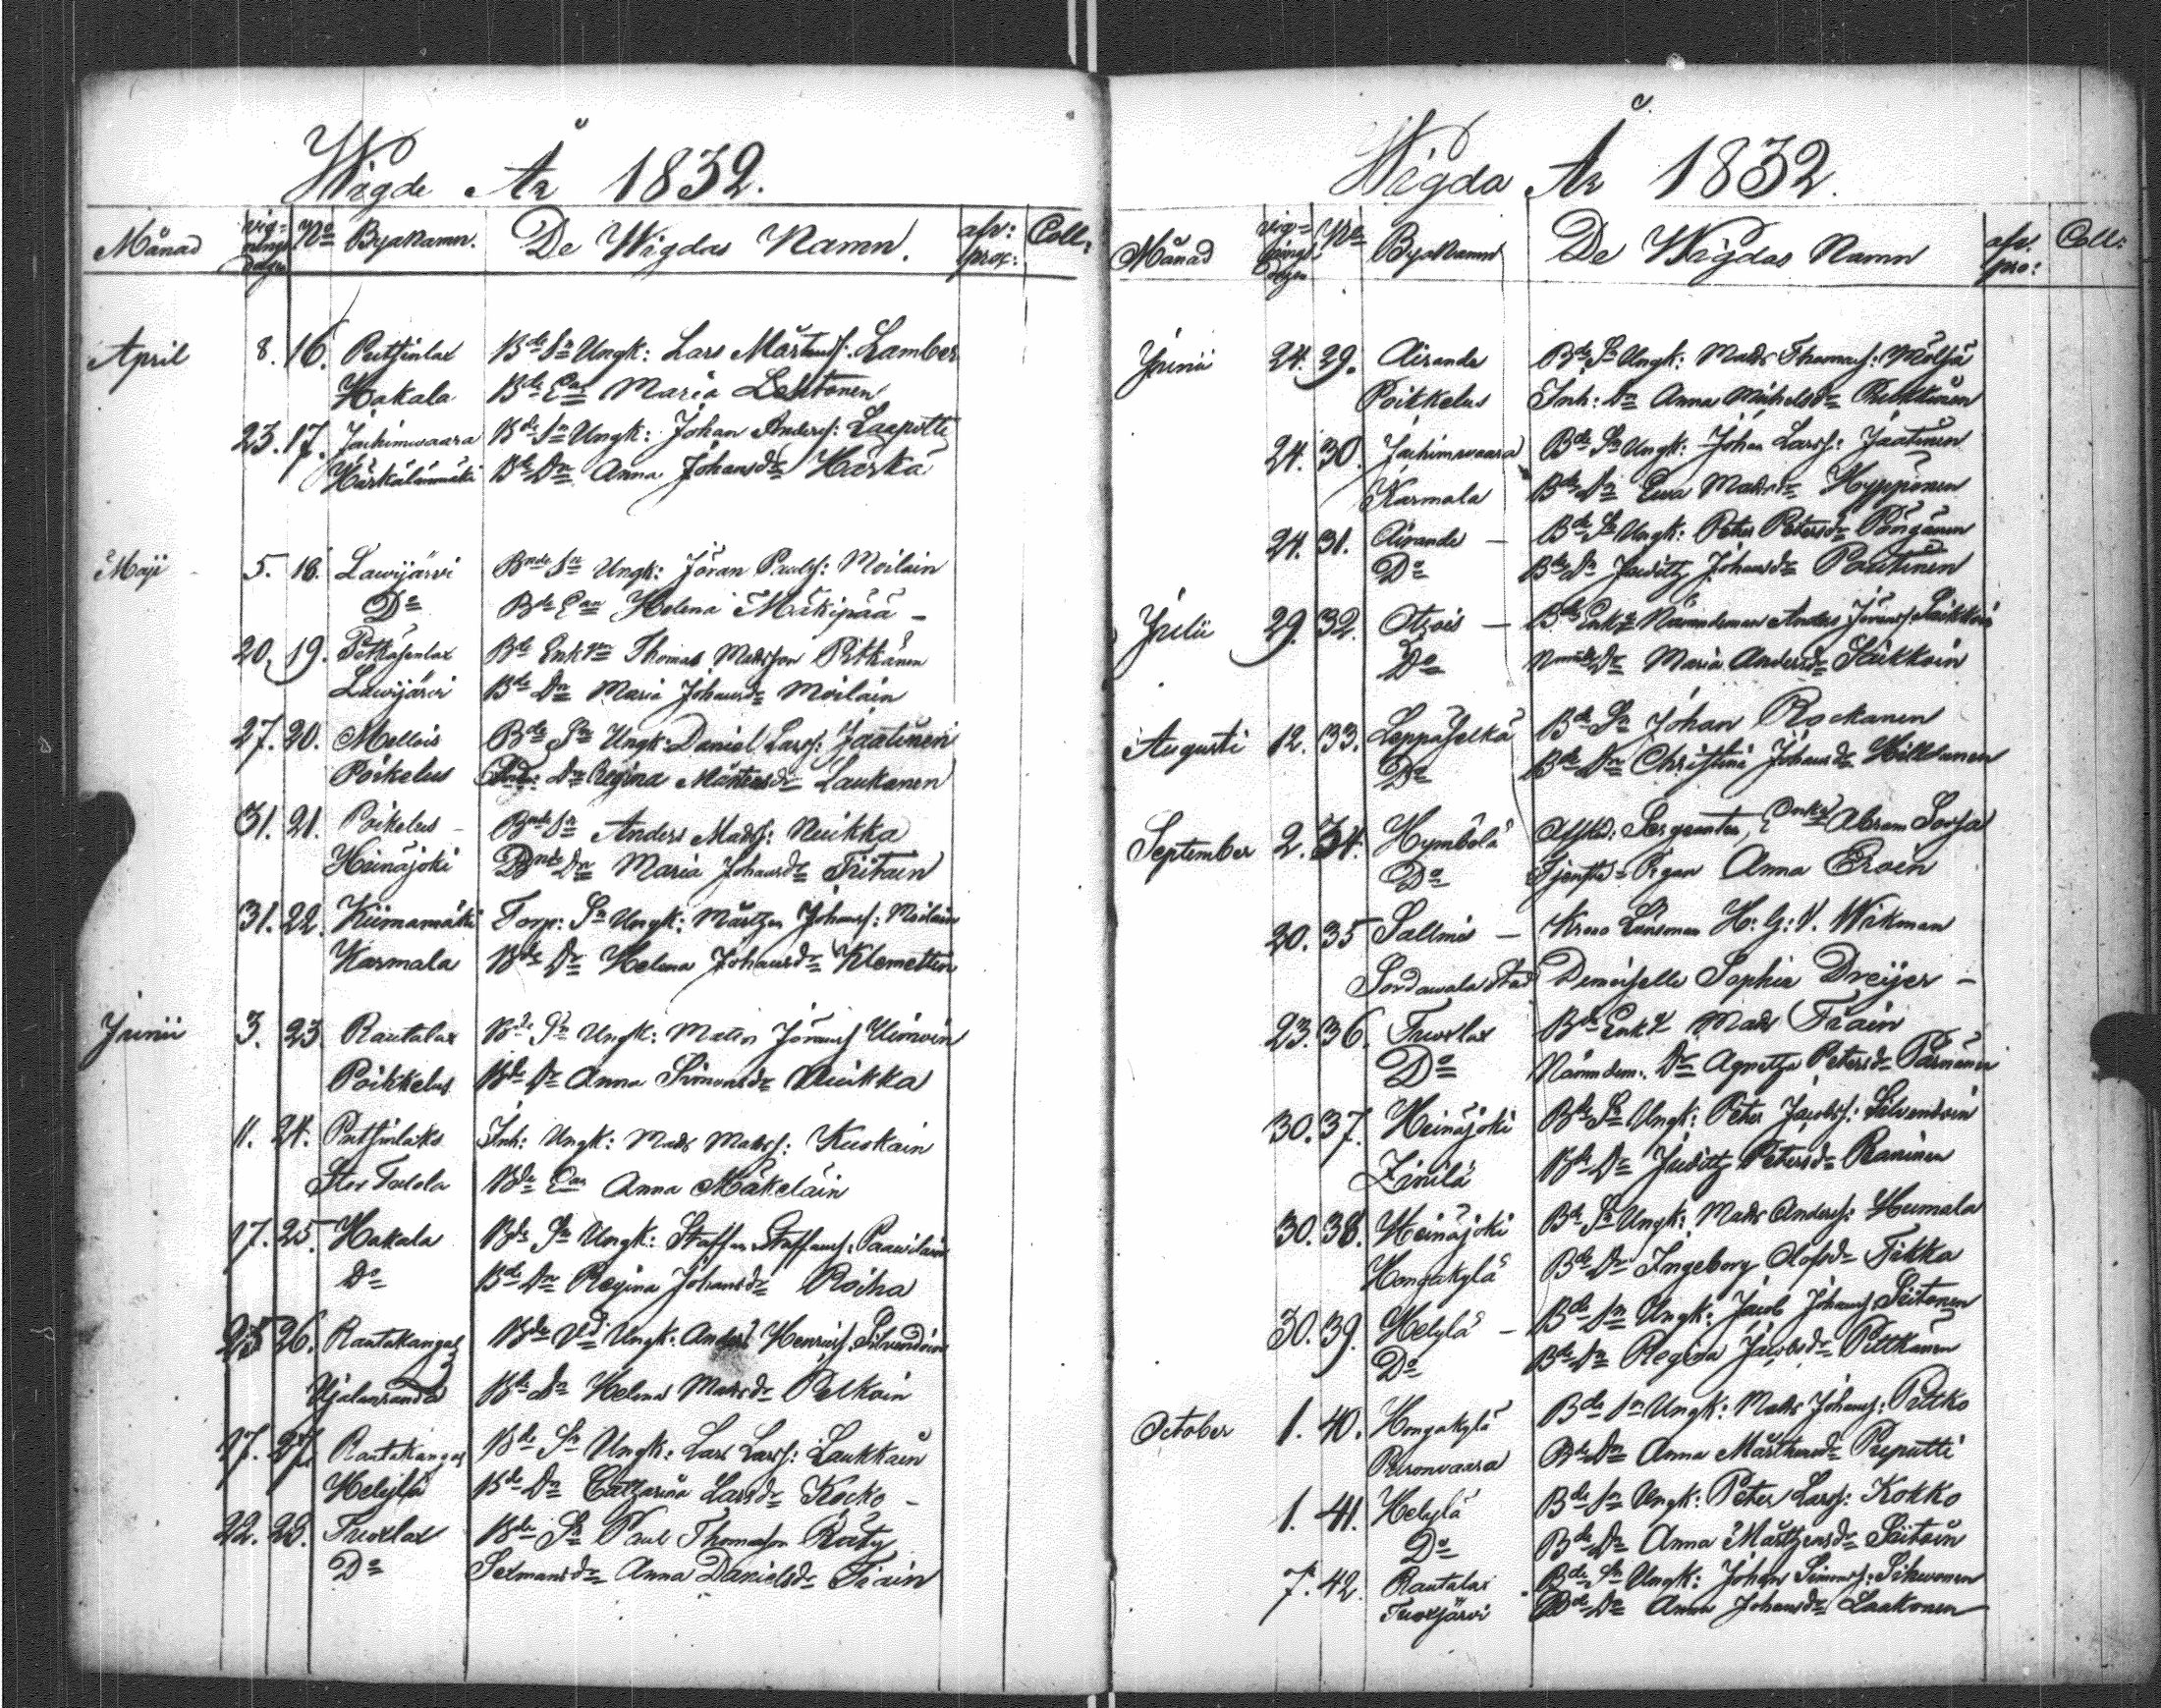 Wigde År 1832.
Månad vig=nings dagen No Byanamn. De Wigdas Namn. afv: prox: Coll:
April 8. 16. Putsinlax Bde Sn Ungk: Lars Mårtenss: Lamber
Hakala Bde Ean Maria Lehtonen
23. 17. Jachimwaara Bde Sn Ungk: Johan Anderss: Laaputti
Härkälänmäki Bde Dn Anna Johansdr Härkä
Maji 5. 18. Lawijärvi Bnde Sn Ungk: Jöran Paulss: Moilain
Do Bde Ean Helena Mäkipää –
20. 19. Petkäsenlax Bde Enkn Thomas Madsson Pitkänen
Lawijärvi Bde Dn Maria Johansdr Moilain
27. 20. Mellois Bde Sn Ungk: Daniel Larss: Jaatinen
Poikelus Dn Regina Mårtensdr Laukanen
31. 21. Poikelus – Bnde Sn Anders Madss: Nuikka
Heinäjoki Bnde Dn Maria Johansdr Tiitain
31. 22. Kiimamäki Torp: Sn Ungk: Mårten Johanss: Moilain
Karmala Bde Dr Helena Johansdr Klemettin
Junii 3. 23 Rautalax Bde Sn Ungk: Matts Jöranss
Poikkelus Bde Dr Anna Simonsdr Nuikka
11. 24. Putsinlaks Inh: Ungk: Mads Madss: Kuskain
Stor Tolola Bde Ean Anna Mäkeläin
17. 25. Hakala Bde Sn Ungk: Staffan Staffanss: Paawilain
Do Bde Dn Regina Johansdr Roiha
25 26. Rautakangas Bde Ungk: Anders Henrics: Silvendoin
Hjalansranda Bde Dn Helena Madsdr Pelkoin
17. 27. Rautakangas Bde Sn Ungk: Lars Larss: Laukkain
Helylä Bde Dn Catharina Larsdr Kocko –
22. 28. Tuoxlax Bde Sn Paul Thomasson Räty
Do Sexmansdr Anna Danielsdr Tiain
Wigda År 1832.
Månad vig=nings dagen No Byanamn De Wigdas Namn afv: pro: Coll:
Junii 24. 29. Airanda Bde Sn Ungk: Mads Thomass: Möltsä
Poikkelus Inh: Dn Anna Michelsdr Rukkinen
24. 30. Jachimwaara Bde Sn Ungk: Johan Larss: Jaatinen
Karmala Bde Dn Ewa Madsdr Hypponen
24. 31. Airanda – Bde Sn Ungk: Peter Petersdr Pöngänen
Do Bde Dn Judith Johansdr Pautinen
Julii 29. 32. Otsois – Bde Enkl Nämndeman Anders Jöranss Saikkoin
Do Dr Maria Andersdr Saikkoin
Augusti 12. 33. Leppäselkä Bde Sn Johan Rockanen
Do Bde Dn Christina Johansdr Hilldunen
September 2. 34. Hymbölä Afsked: Sergeanten, Enkl Abram Sorsa
Do Tjenste-Pigan Anna Eroin
20. 35 Sallmis – Krono Länsman H: G: V. Wikman
Sordawala Stad Demoiselle Sophia Dreijer –
23. 36. Tuoxlax Bde Enkl Mads Tiain
Do Nämndem: Dr Agnetza Petersdr Pärnänen
30. 37. Heinäjoki Bde Sn Ungk: Peter Jacobss: Silvendoin
Zinilä Bde Dr Judith Petersdr Raninen
30. 38. Heinäjoki Bde Sn Ungk: Mads Anderss: Humala
Hongakylä Bde Dr Ingeborg Olofsdr Tikka
30. 39. Helylä – Bde Sn Ungk: Jacob Johanss Siitonen
Do Bde Dn Regina Jacobsdr Pittkänen
October 1. 40. Hongakylä Bde Sn Ungk: Mads Johanss: Pittko
Rironvaara Bde Dn Anna Mårtensdr Puputti
1. 41. Helylä Bde Sn Ungk: Peter Larss: Kokko
Do Bde Dn Anna Mårtensdr Siitoin
7. 42. Rautalax Bde Sn Ungk: Johan Simonss: Sihwonen
Tuoxjärvi Bde Dn Anna Johansdr Laakonen